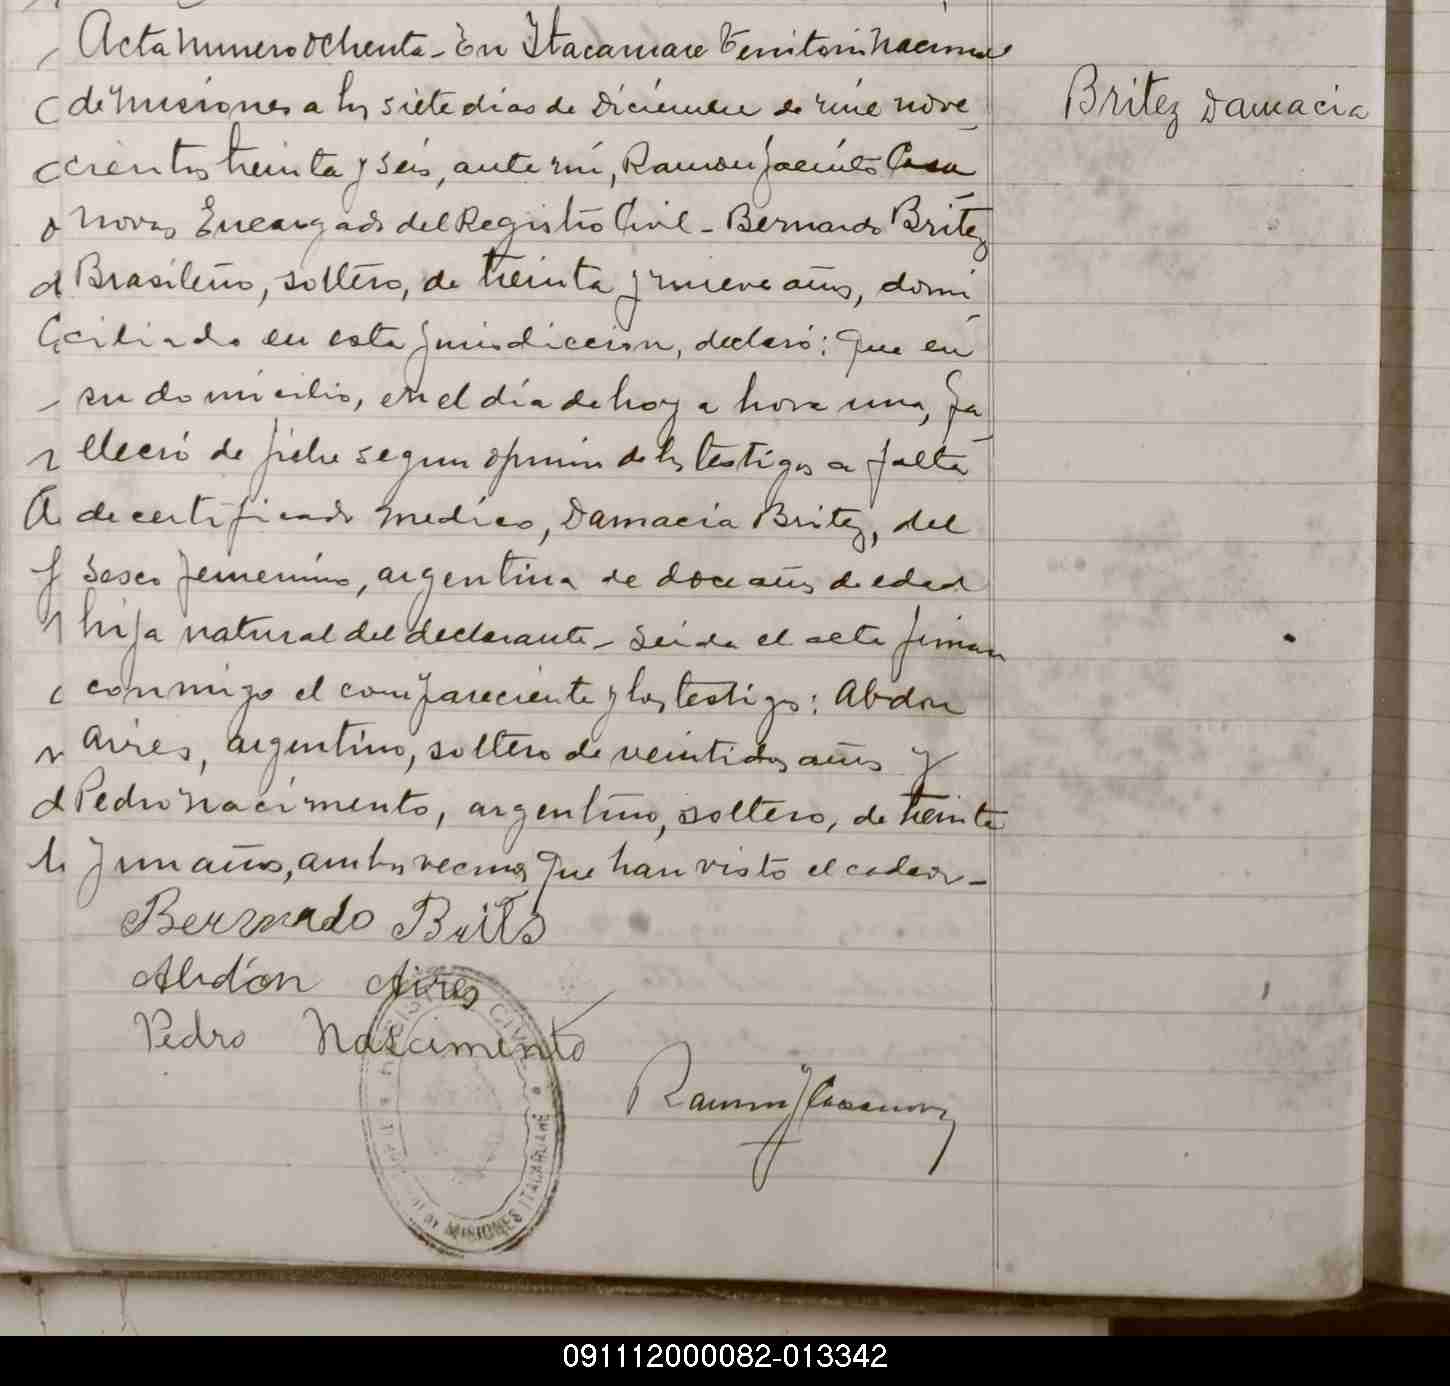 Acta numero ochenta - En Itacaruare territorio nacional
de misiones a los siete dias de Diciembre de mil nove
cientos treinta y seis, ante mi, Ramon Jacinto Casa
novas Encargado del Registro Civil - Bernardo Britez
Brasileño, soltero, de treinta y nueve años, domi
ciliado en esta jurisdiccion, declaró: Que en
su domicilio, en el día de hoy a hora una, fa
lleció de fiebre segun opinion de los testigos a falta
de certificado medico, Damacia Britez, del
sexo femenino, argentina de doce años de edad
hija natural del declarante - Leida el acta firman
conmigo el compareciente y los testigos: Abdon
Aires, argentino, soltero de veintidos años y
Pedro Nacimento, argentino, soltero, de treinta
y un años, ambos vecinos que han visto el cadaver -
Britez Damacia
Bernardo Brits
Abdón Aires
Pedro Nascimento
Ramon J Casanova
REGISTRO CIVIL
MISIONES ITACARUARÉ
091112000082-013342